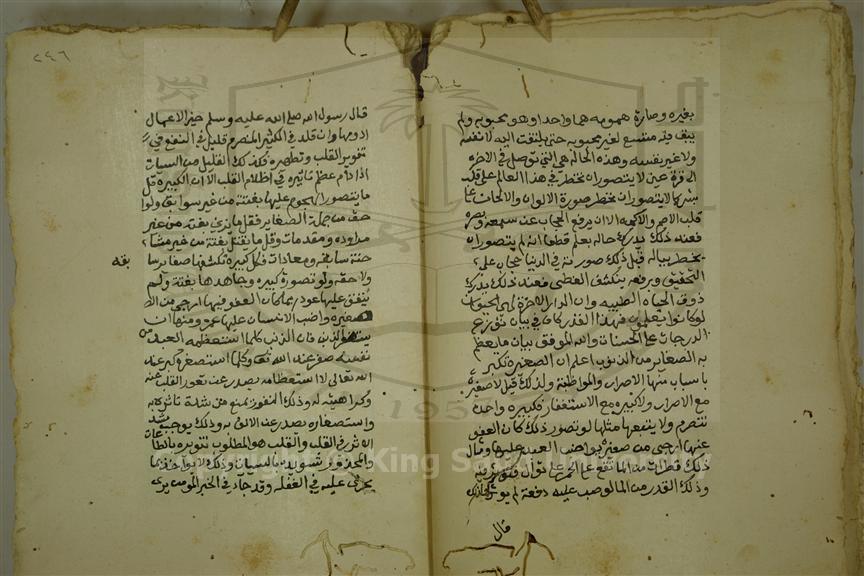 بغيره وصارة همومه هما واحدا وهو محبوبه ولم
يبق فيه متسع لغير محبوبه حتى يلتفت اليه لا نفسه
ولا غير نفسه وهذه الحاله هي التي توصل في الاخره
الى قرة عين لا يتصور ان تخطر في هذا العالم على قلب
بشر كما لا يتصور ان يخطر صورة الالوان والالحان على
قلب الاصم والاكمه الا ان يرفع الحجاب عن سمعه وبصره
فعند ذلك يدرك حاله يعلم قطعا انه لم يتصور ان
يخطر بباله قبل ذلك صورته في الدنيا حجاب على
التحقيق وبرفعه ينكشف الغطى فعند ذلك يدرك
ذوق الحياه الطيبه وان الدار الاخرة لهي الحيوان
لو كانوا يعلمون فهذا القدر كان في بيان توزع
الدرجات على الحسنات والله الموفق بيان ما يعظم
به الصغاير من الذنوب اعلم ان الصغيرة تكبر
باسباب منها الاصرار والمواظبة ولذلك قيل لا صغيرة
مع الاصرار ولا كبيره مع الاستغفار فكبيره واحدة
تنصرم ولا يتبعها مثلها لو تصور ذلك كان العفو
عنها ارجى من صغيرة يواضب العبد عليها ومثال
ذلك قطرات من الما تقع على الحجر على توال فتوثر فيه
وذلك القدر من الما لو صب عليه دفعة لم يوثر
قال
٢٤٦
قال رسول الله صلى الله عليه وسلم خير الاعمال
ادومها وان قلت فالكثير المنصرم قليل في النفع في
تنوير القلب وتطهيره فكذلك القليل من السيات
اذا دام عظم تاثيره في اظلام القلب الا ان الكبيرة قل
ما يتصور الهجوم عليها بغتة من غير سوابق ولواحق
من جملة الصغاير فقل ما يزني بغتة من غير
مراوده ومقدمات وقل ما يقتل بغتة من غير مشا
حنة سابقه ومعادات فكل كبيرة تكتنفها صغاير سا
بقه
ولاحقه ولو تصورة كبيره وجاهدها بغتة ولم
يتفق عليها عود ربما كان العفو فيها ارجى من
صغيره واضب الانسان عليها عمره ومنها ان
يستصغر الذنب فان الذنب كلما استعظمه العبد من
نفسه صغر عند الله تعالى وكلما استصغره كبر عند
الله تعالى لان استعظامه يصدر عن نفور القلب عنه
وكراهيته له وذلك النفور يمنع من شدة تاثره به
واستصغاره يصدر عن الالف له وذلك يوجب شدة
الاثر في القلب والقلب هو المطلوب تنويره بالطاعات
والمحذور تسويده بالسيات ولذلك لا يواخذ بما
يجري عليه في الغفله وقد جاء في الخبر المومن يرى